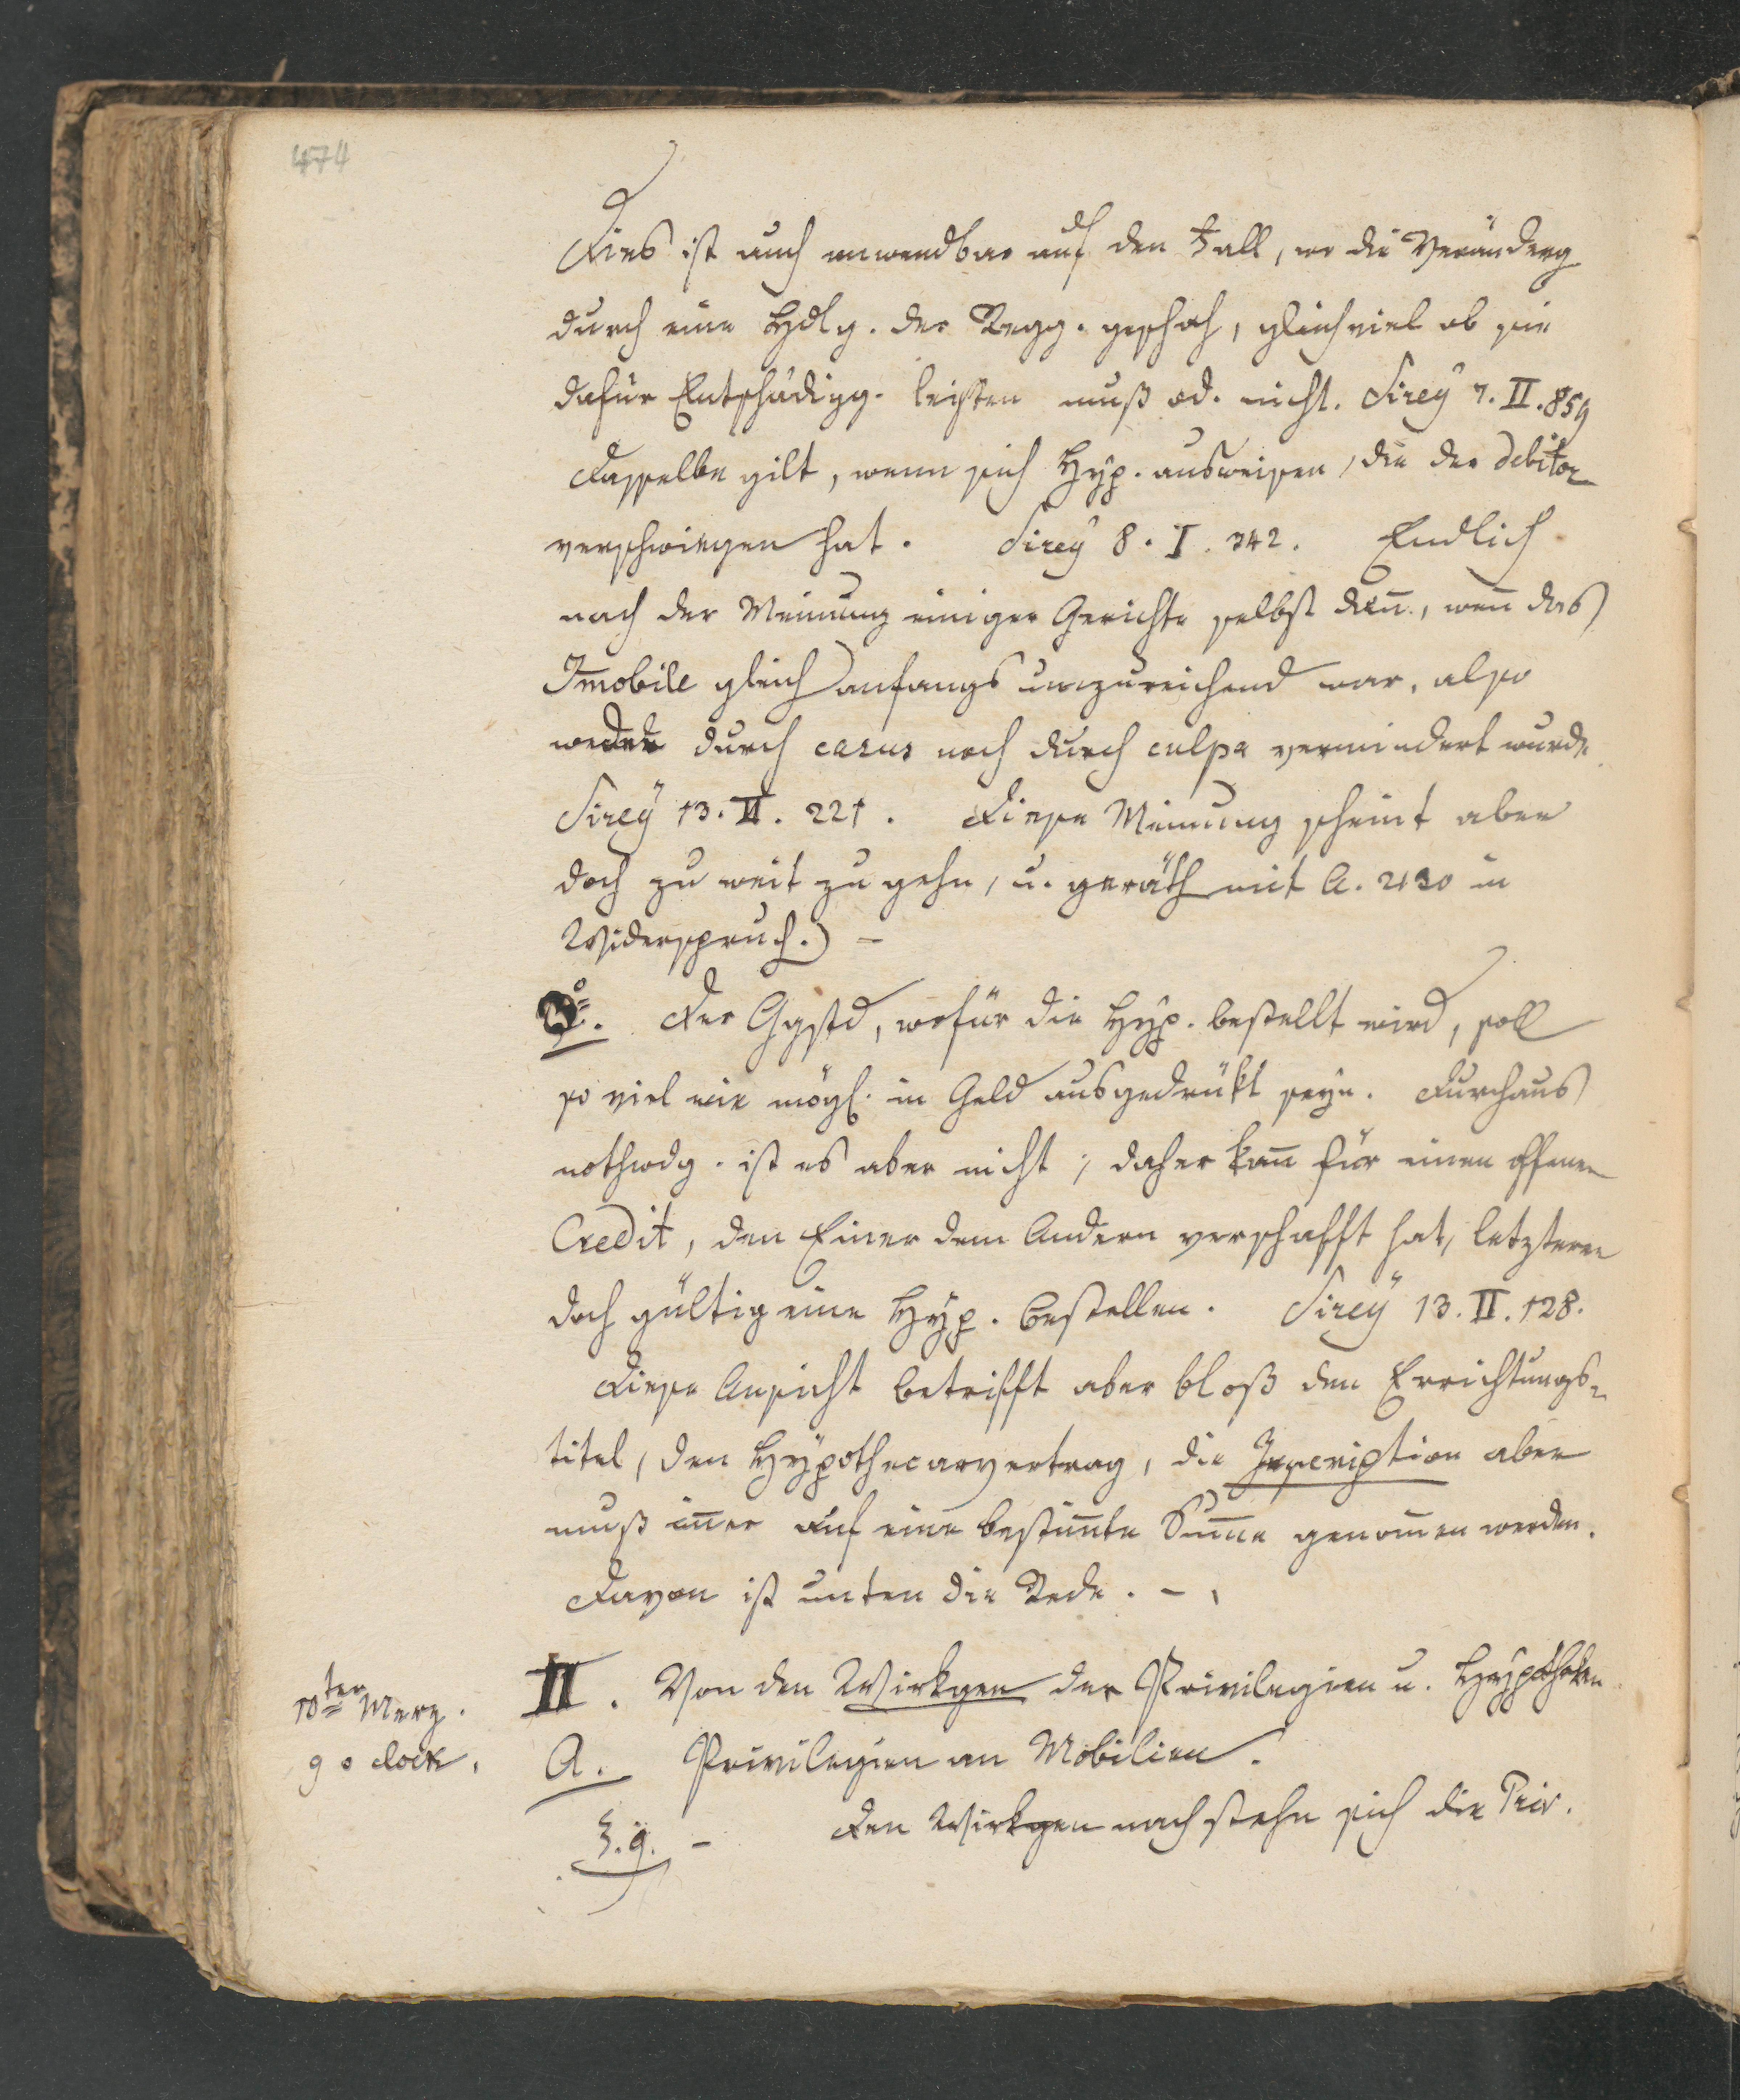 474
Dies ist auch anwendbar auf den Fall, wo die Veränderg
durch eine Hdlg. der Regg. geschah, gleichviel ob sie
dafür Entschädigg. leisten muß od. nicht. Sirey 7. II. 859
Dasselbe gilt, wenn sich Hyp. ausweisen, die der debitor
verschwiegen hat. Sirey 8. I. 342. Endlich
nach der Meinung einiger Gerichte selbst dañ, weñ das
Im̅obile gleich anfangs unzureichend war, also
weder durch casus noch durch culpa vermindert wurde.
Sirey 13. II. 221. Diese Meinung scheint aber
doch zu weit zu gehn, u. geräth mit A. 2130 in
Widerspruch.) –
3º. Der Ggstd, wofür die Hyp. bestellt wird, soll
so viel wie mögl. in Geld ausgedrükt seyn. Durchaus
nothwdg. ist es aber nicht; daher kañ für einen offenen
Credit, den Einer dem Andern verschafft hat, letzterer
doch gültig eine Hyp. bestellen. Sirey 13. II. 128.
Diese Ansicht betrifft aber bloß den Errichtungs-
titel, den Hypothecarvertrag, die Inscription aber
muß im̅er auf eine bestim̅te Sum̅e genom̅en werden.
Davon ist unten die Rede. –
10ter Merz.
9 o clock.
II. Von den Wirkgen der Privilegien u. Hypotheken.
A. Privilegien an Mobilien.
§. 9. – Den Wirkgen nach stehn sich die Priv.